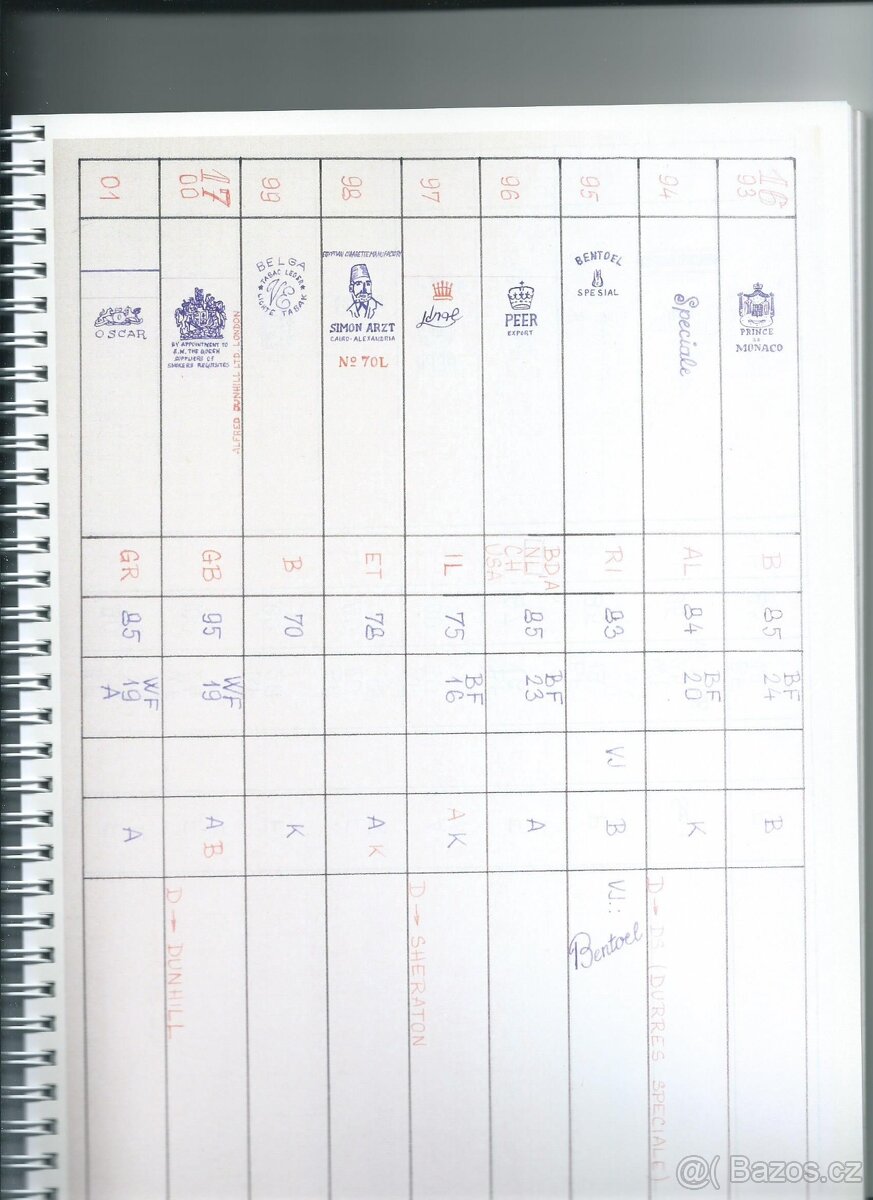 16
93
PRINCE
DE
MONACO
B
85
BF
24
B
94
Speciale
AL
84
BF
20
K
D → DS (DURRES SPECIALE)
95
BENTOEL
SPESIAL
RI
83
VJ
B
VJ.: Bentoel
96
PEER
EXPORT
BD/A
NL
CH
USA
85
BF
23
A
97
IL
75
BF
16
A K
D → SHERATON
98
EGYPTIAN CIGARETTE MANUFACTORY
SIMON ARZT
CAIRO-ALEXANDRIA
Nº 70L
ET
78
A K
99
BELGA
TABAC LEGER
VE
LICHTE TABAK
B
70
K
17
00
BY APPOINTMENT TO
H.M. THE QUEEN
SUPPLIERS OF
SMOKERS REQUISITES
ALFRED DUNHILL LTD. LONDON
GB
95
WF
19
A B
D → DUNHILL
01
OSCAR
GR
85
WF
19
A
A
@( Bazos.cz